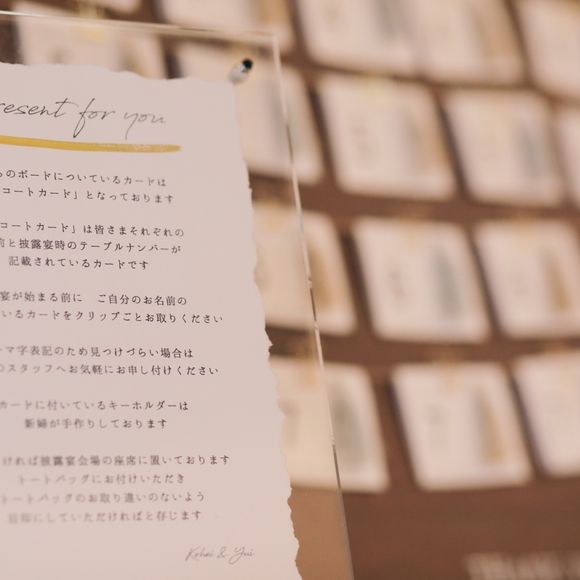 resent for you
のボードについているカードは
コートカード」となっております
コートカード」は皆さまそれぞれの
前と披露宴時のテーブルナンバーが
記載されているカードです
宴が始まる前に　ご自分のお名前の
いるカードをクリップごとお取りください
マ字表記のため見つけづらい場合は
スタッフへお気軽にお申し付けください
カードに付いているキーホルダーは
新婦が手作りしております
ければ披露宴会場の座席に置いております
トートバッグにお付けいただき
トートバッグのお取り違いのないよう
目印にしていただければと存じます
Kohei & Yui